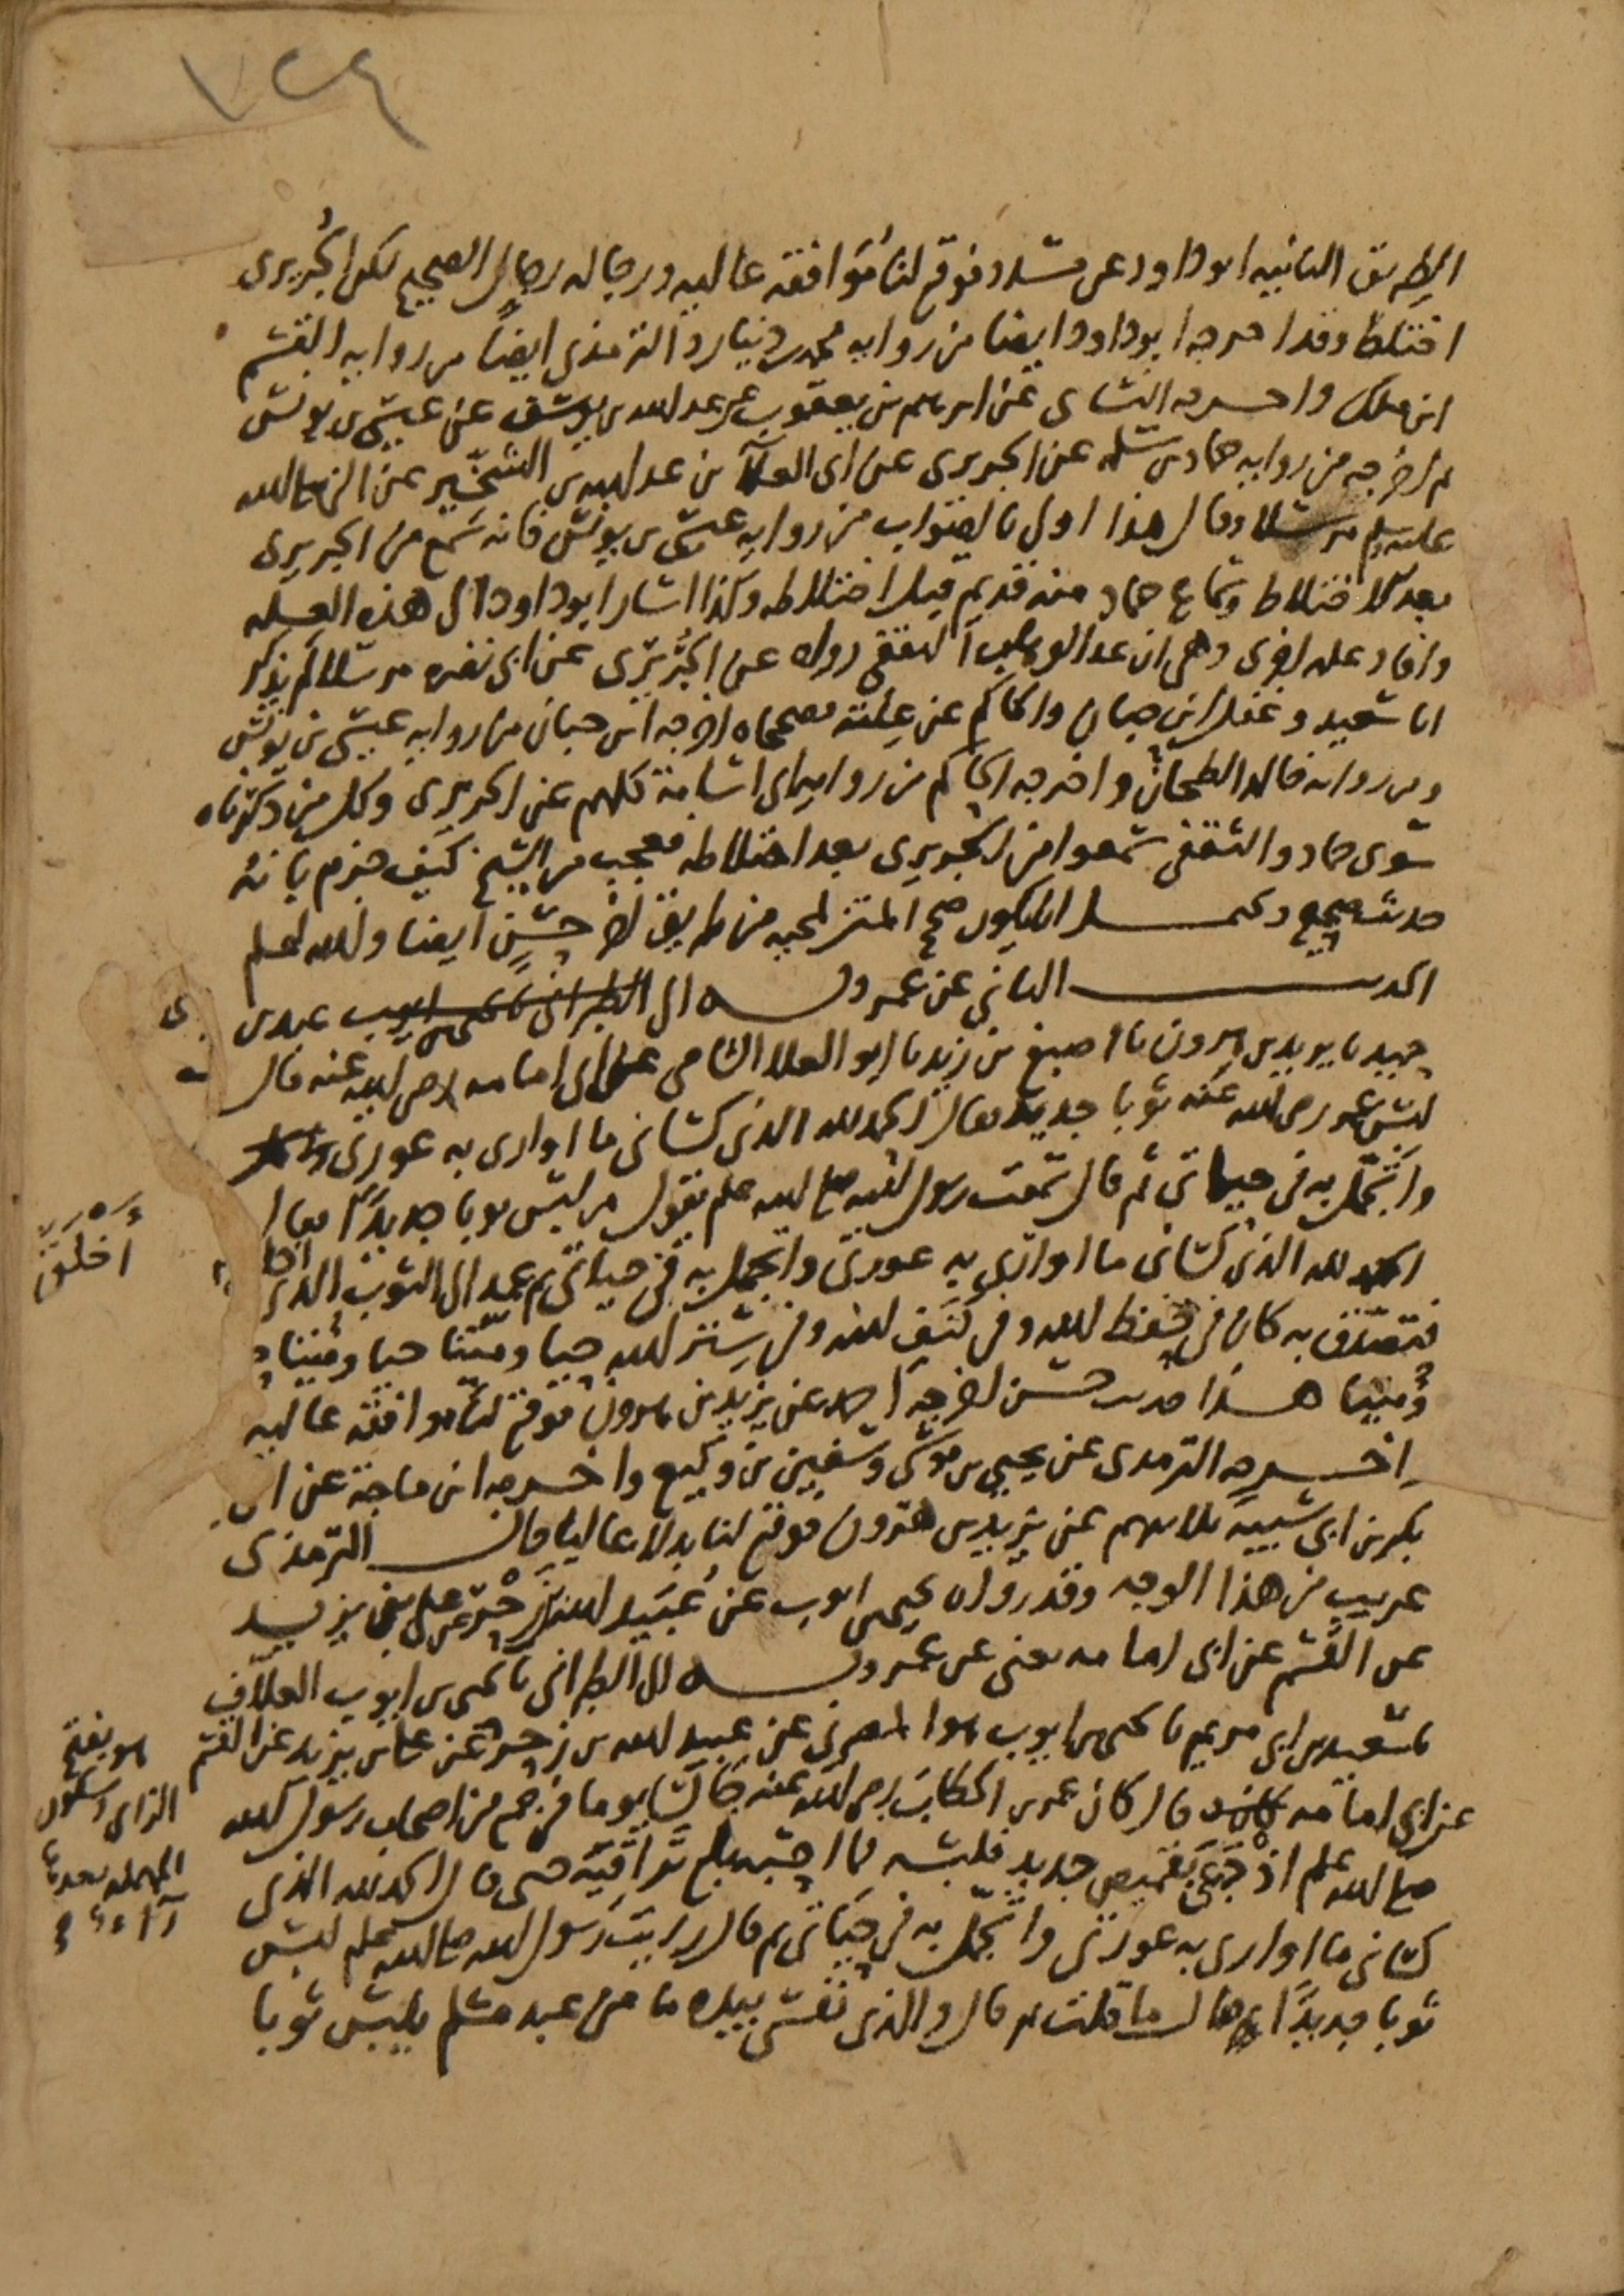 ٧٢٤
الطريق الثانيه ابو داود عن مسدد فوقع لنا مُوَافقة عاليه ورجاله رجال الصحيح لكن الجُريري
اختلط وقد اخرجه ابو داود ايضا من روايه محمد بن دينار والترمذي ايضا من روايه القسم
ابن ملك واخرجه النساى عن ابرهيم بن يعقوب عن عبد الله بن يوسف عن عيسى بن يونس
ثم اخرجه من روايه حماد بن سلمه عن الجريرى عن ابى العلآ بن عبد الله بن الشخير عن النبى صلى الله
عليه وسلم مرسلا وقال هذا اولى بالصواب من روايه عيسى بن يونس فانه سمع من الجريرى
بعد الاختلاط وسماع حماد منه قديم قبل اختلاطه وكذا اشار ابو داود الى هذه العله
وافاد علة اخرى وهى ان عبد الوهاب الثقفى رواه عن الجُريرى عن ابى نضره مرسلا لم يذكر
ابا سعيد وغفل ابن حبان والحاكم عن علته فصححاه اخرجه ابن حبان من روايه عيسى بن يونس
ومن روايه خالد الطحان واخرجه الحاكم من روايه ابى اسامة كلهم عن الجريرى وكل من ذكرناه
سوى حماد والثقفى سمعوا من الجريرى بعد اختلاطه فعجب من الشيخ كيف جزم بانه
حديث صحيح ويحتمل ان يكون صحح المتن لمجيه من طريق اخر حسن ايضا والله اعلم
الحديث الثانى عن عمر وبه الى الطبرانى عبد بن
حميد نا يزيد بن هرون نا اصبغ بن زيد نا ابو العلا الشامى عن ابى امامه رضى الله عنه قال
لبس عمر رضى الله عنه ثوبا جديدا فقال الحمد لله الذى كسانى ما اوارى به عورتى
واتجمل به فى حياتى ثم قال سمعت رسول الله صلى الله عليه وسلم يقول من لبس ثوبا جديدًا فقال
الحمد لله الذى كسانى ما اوارى به عورتى واتجمل به فى حياتى ثم عمد الى الثوب الذى
أَخْلَقَ
فتصدق به كان فى حفظ الله وفى كنف الله وفى ستر الله حيا وميتا حيا وميتا
وميتا هذا حديث حسن اخرجه احمد عن يزيد بن هرون فوقع لنا موافقه عاليه
واخرجه الترمذى عن يحيى بن موسى وسفين بن وكيع واخرجه ابن ماجة عن ابى
بكر بن ابى شيبه ثلاثتهم عن يزيد بن هرون فوقع لنا بدلا عاليا قال الترمذى
غريب من هذا الوجه وقد رواه يحيى بن ايوب عن عُبَيد الله بن زَحْر عن على بن يزيد
عن القسم عن ابى امامه يعنى عن عمر وبه الى الطبرانى نا يحيى بن ايوب العلاف
نا سعيد بن ابى مريم نا يحيى بن ايوب هوا لمصرى عن عبيد الله بن زحر عن على بن يزيد عن القسم
هو بفتح
الزاى وسكون
المهمله بعدها
رآء
عن ابى امامه قال كان عمر بن الخطاب رضى الله عنه جالسا يوما فى جمع من اصحاب رسول الله
صلى الله عليه وسلم اذ جئ بقميص جديد فلبسه فما احسبه بلغ تراقيه حتى قال الحمد لله الذى
كسانى ما اوارى به عورتى واتجمل به فى حياتى ثم قال رايت رسول الله صلى الله عليه وسلم لبس
ثوبا جديدًا ثم قال ما قلت ثم قال والذى نفسى بيده ما من عبد مسلم يلبس ثوبا